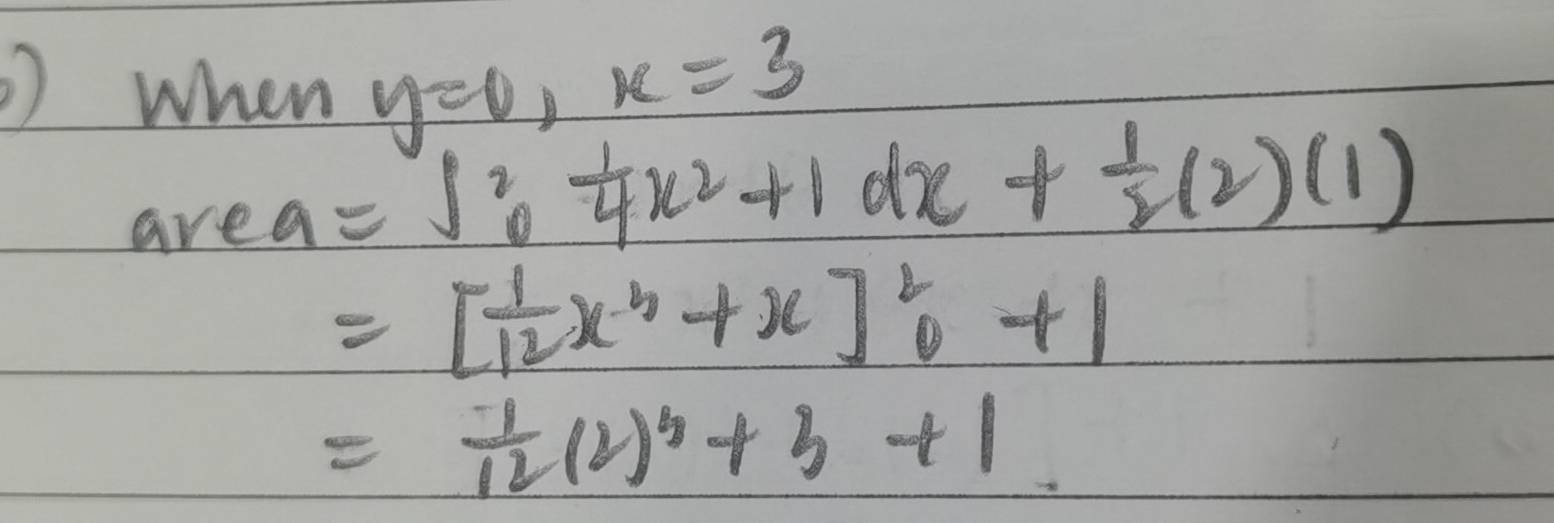 b) When y=0, x=3
area = ∫²₀ 1/4x²+1 dx + 1/2(2)(1)
= [1/12x³ + x]²₀ + 1
= 1/12(2)³ + 3 + 1